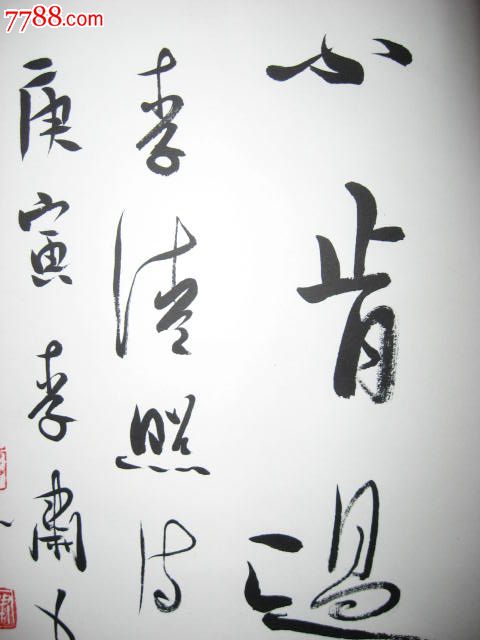 7788.com
不肯過
李清照诗
庚寅李肅